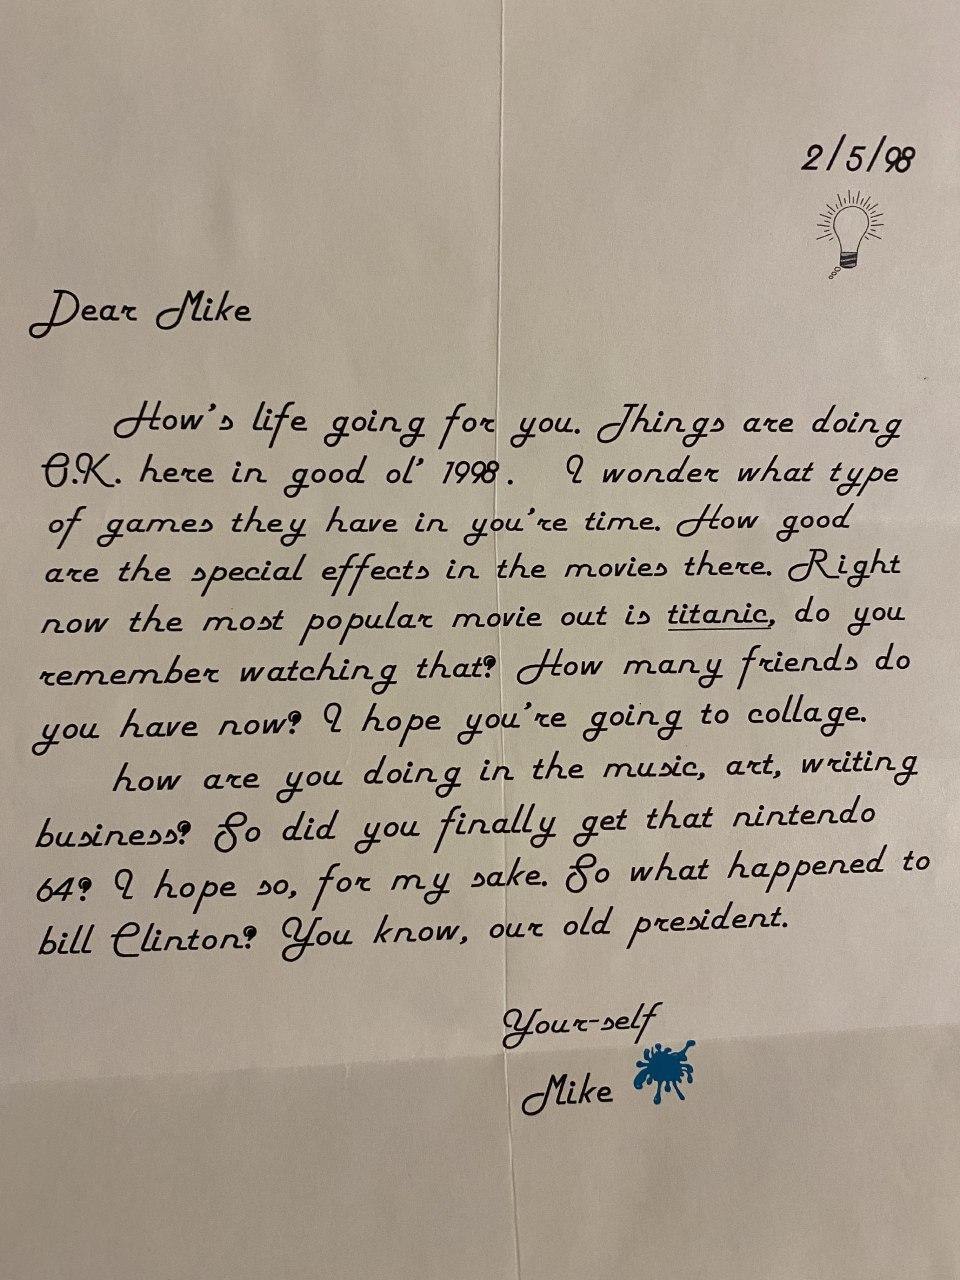 2/5/98
Dear Mike
How's life going for you. Things are doing
O.K. here in good ol' 1998. I wonder what type
of games they have in you're time. How good
are the special effects in the movies there. Right
now the most popular movie out is titanic, do you
remember watching that? How many friends do
you have now? I hope you're going to collage.
how are you doing in the music, art, writing
business? So did you finally get that nintendo
64? I hope so, for my sake. So what happened to
bill Clinton? You know, our old president.
Your-self
Mike